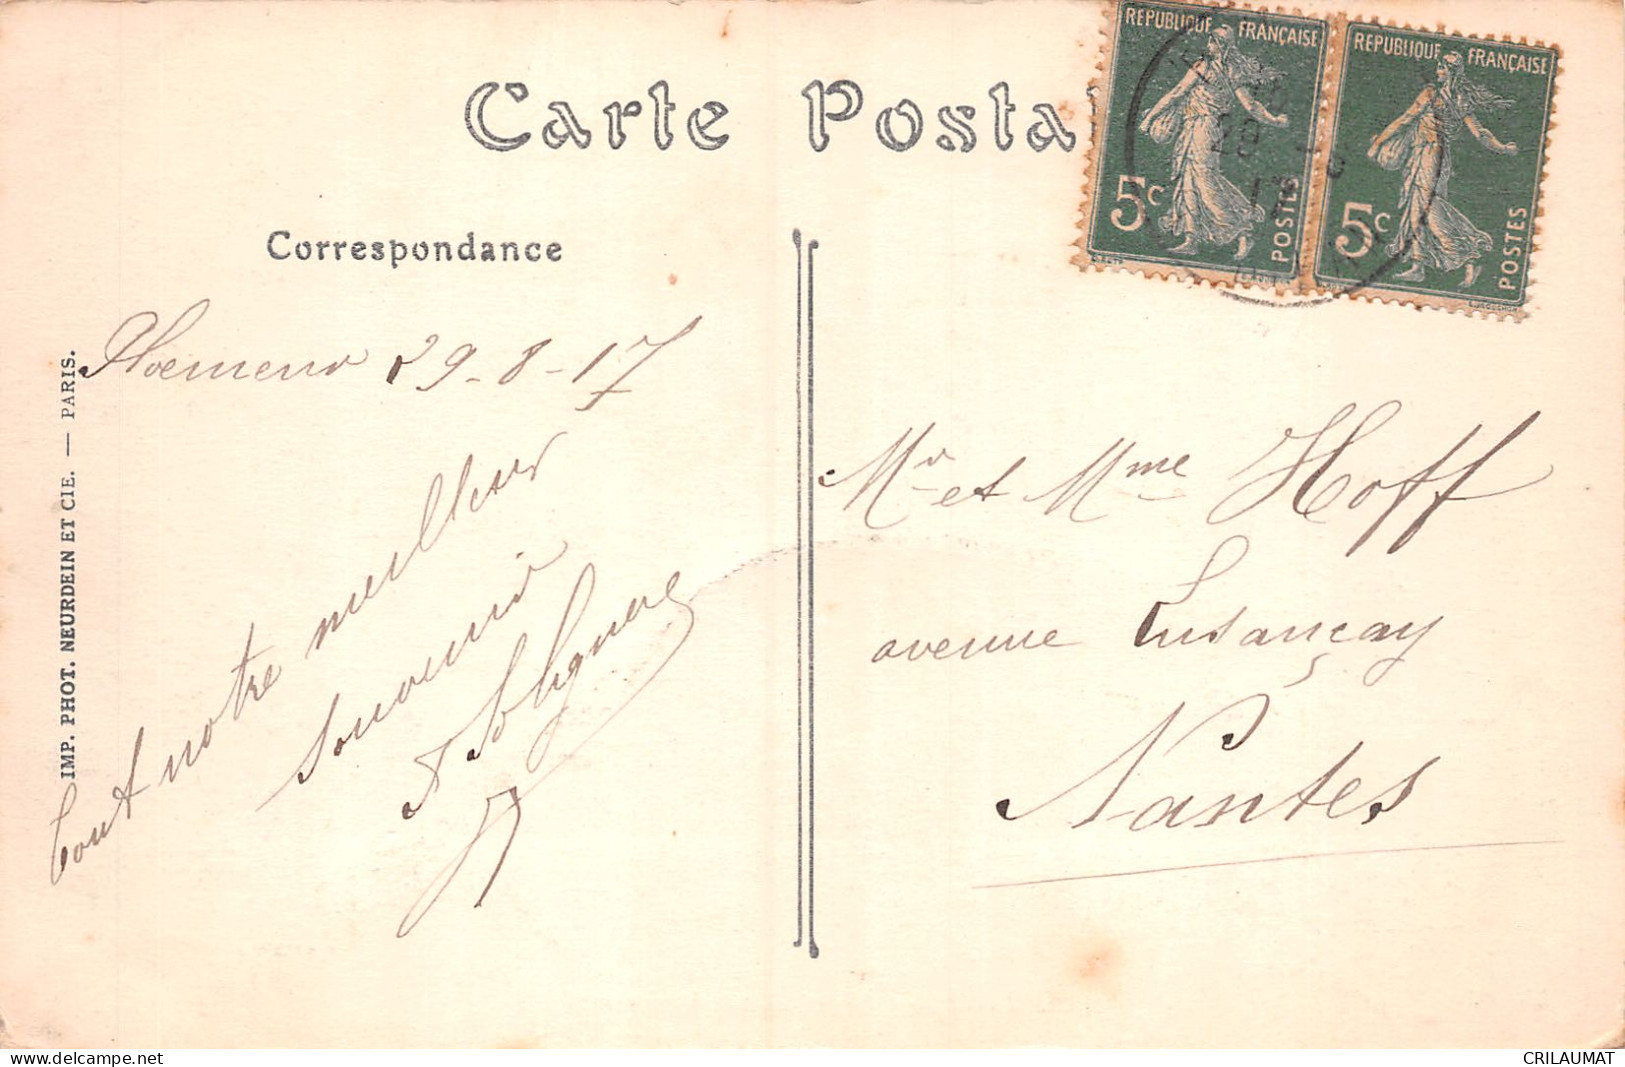 Carte Posta
RÉPUBLIQUE FRANÇAISE
5c
POSTES
RÉPUBLIQUE FRANÇAISE
5c
POSTES
Correspondance
Ploemeur 29-8-17
Tout notre meilleur
souvenir
Mr et Mme Hoff
avenue Lusançay
Nantes
IMP. PHOT. NEURDEIN ET CIE. — PARIS.
www.delcampe.net
CRILAUMAT